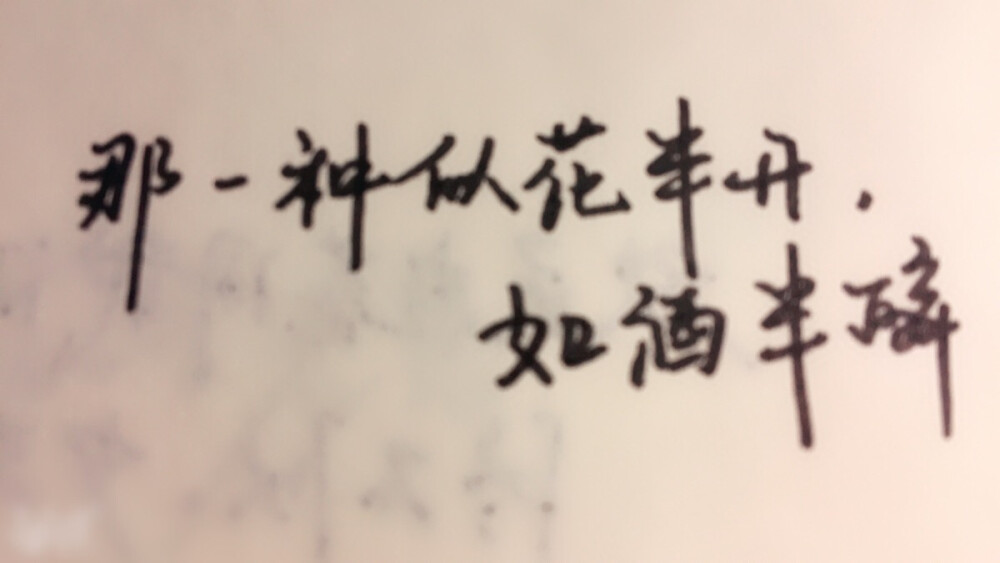 那一种似花半开，
如酒半醉